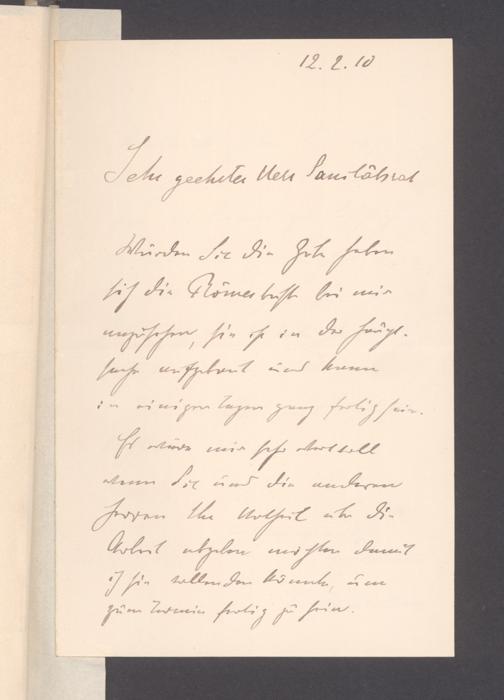 12.2.10
Sehr geehrter Herr Sanitätsrat
Würden Sie die Güte haben
sich die Römerbüste bei mir
anzusehen, sie ist in der Haupt-
sache aufgebaut und kann
in einigen Tagen ganz fertig sein.
Es wäre mir sehr wertvoll
wenn Sie und die anderen
Herren Ihr Urtheil über die
Arbeit abgeben möchten damit
ich sie vollenden könnte, um
zum Termin fertig zu sein.